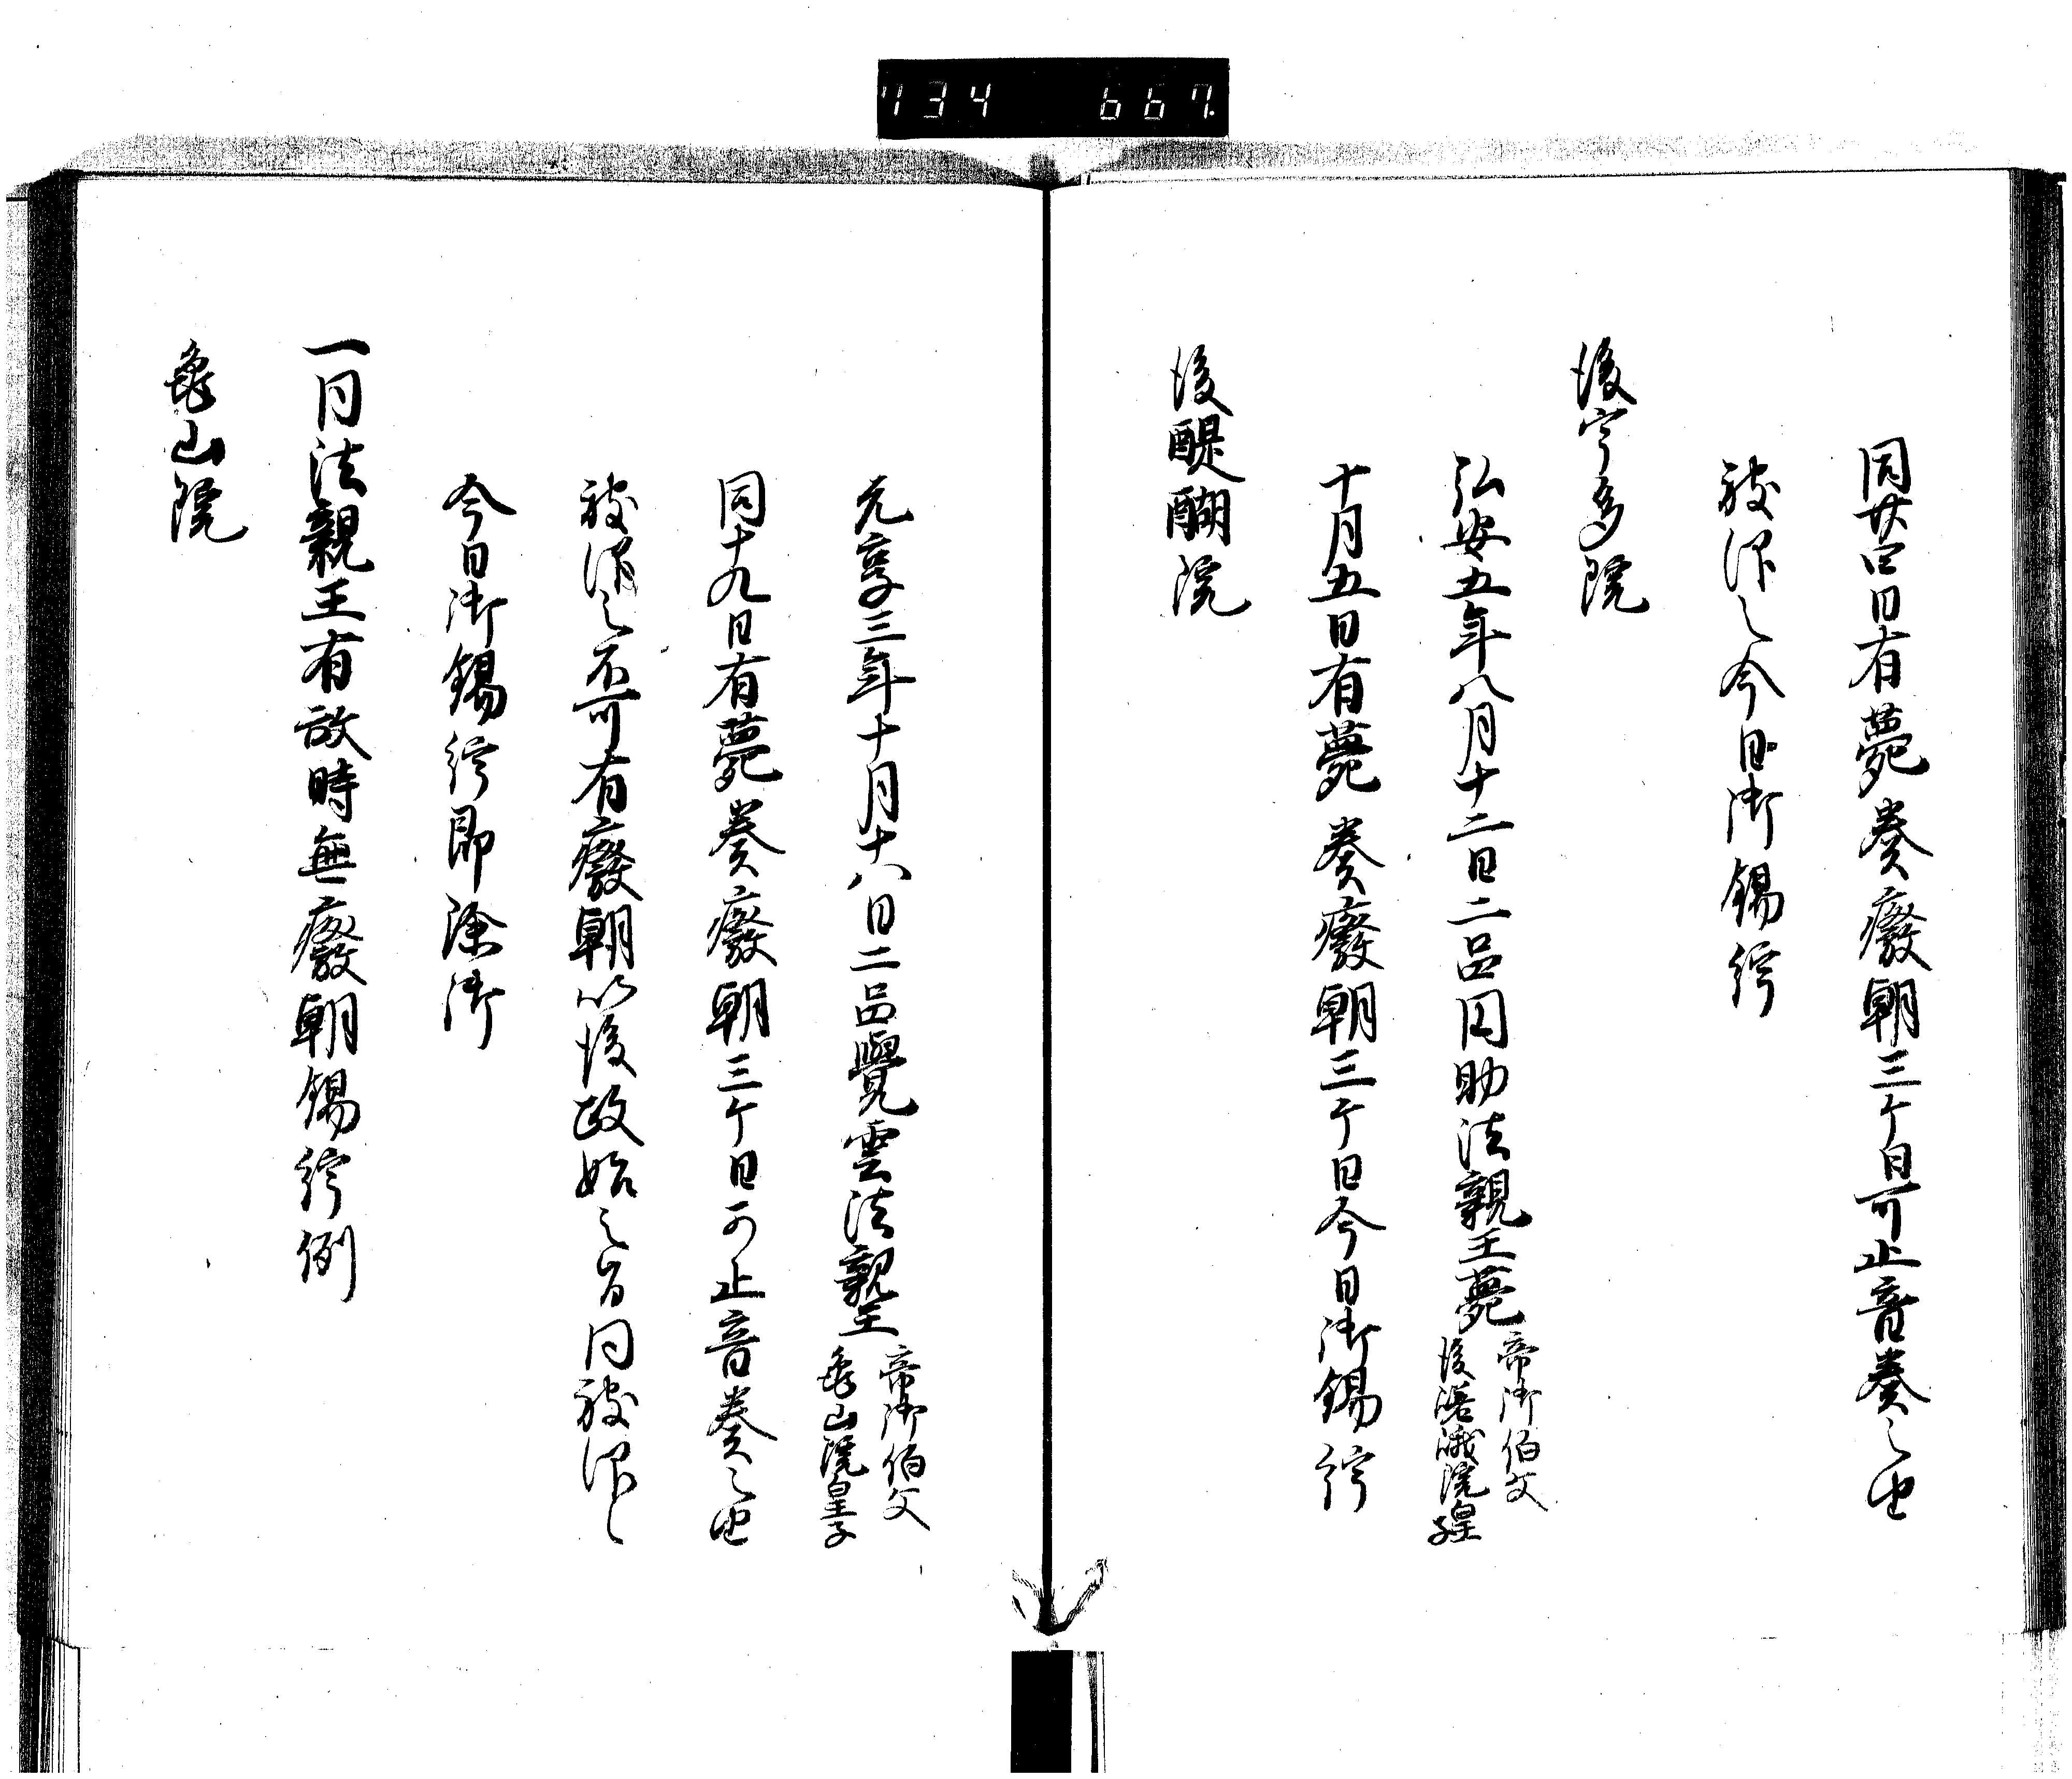 734 667
同廿四日有薨奏廃朝三ケ日可止音奏之由
被仰之今日御錫紵
後宇多院
弘安五年八月十二日二品円助法親王薨帝御伯父
後嵯峨院皇子
十月五日有薨奏癈朝三ケ日今日御錫紵
後醍醐院
元享三年十月十八日二品覺雲法親王帝御伯父
亀山院皇子
同十九日有薨奏癈朝三ケ日可止音奏之由
被仰之不可有癈朝以後政始之前同被仰之
今日御錫紵即除御
一同法親王有故時無癈朝錫紵例
亀山院